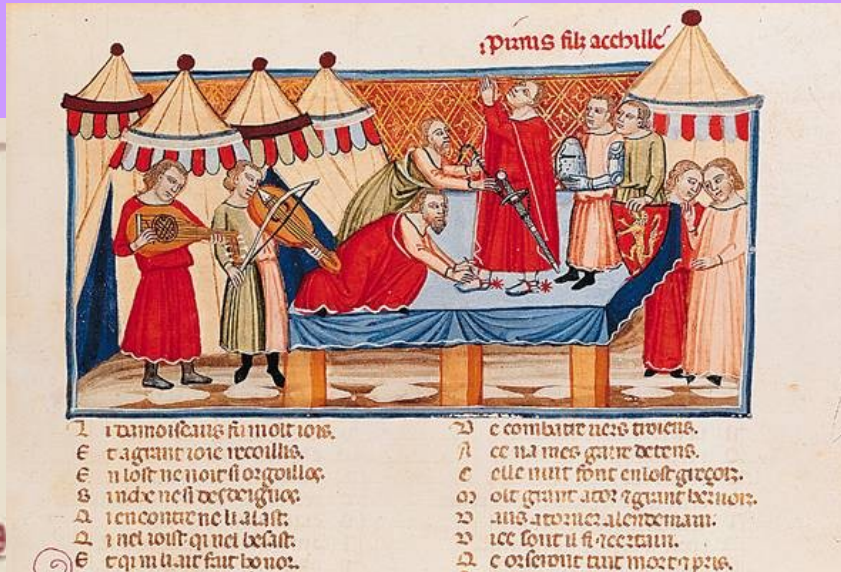 pirrus filz acchille
L i damoiseaus fu molt iois.
E t a grant ioie recoillis.
E n lost ne noit si orgoillos.
ne si desdeignos.
Q i encontre ne li alast.
Q i nel ioist qi nel besast.
E t qi li ait fait honor.
D e combatre uers troiens.
A ce na mes gaire de tens.
C elle nuit font en lost
M olt grant ator & grant
D aus atorner a lendemain.
D ice sont il fi & certain.
Q e or seront tuit mort & pris.